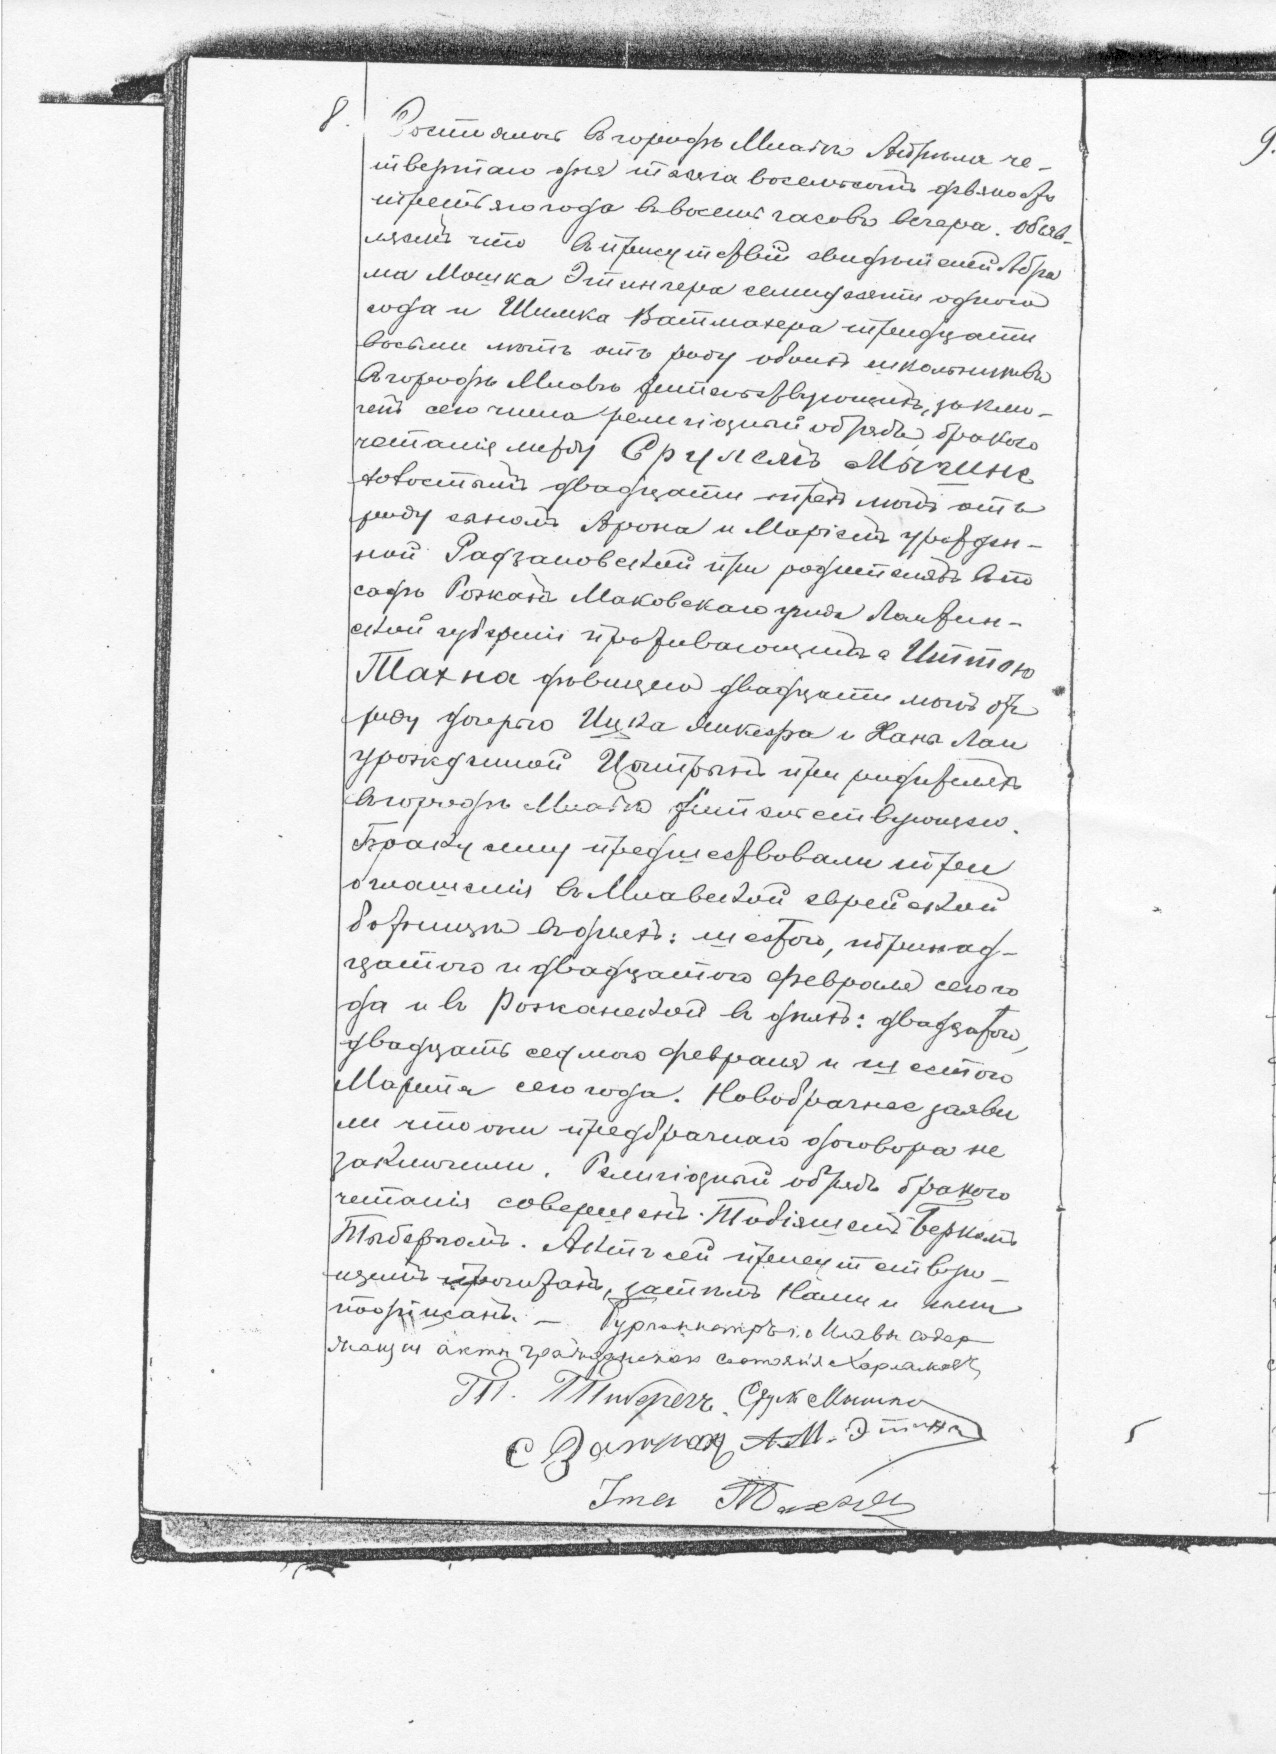 8.
Состоялось въ городѣ Млавѣ Апрѣля че-
твертаго дня тысяча восемьсотъ девяносто
третьяго года въ восемь часовъ вечера. Объяв-
ляемъ что въ присутствіи свидѣтелей Абра
ма Мошка Этингера семидесяти одного
года и Шимка Ватмахера тридцати
восьми лѣтъ отъ роду обоихъ школьниковъ
въ городѣ Млавѣ жительствующихъ, заклю-
ченъ сего числа религіозный обрядъ брако
четанія между Срулемъ Мычинс
холостымъ двадцати трехъ лѣтъ отъ
роду сыномъ Арона и Маріемъ урожден-
ной Радзановской при родителяхъ въ по
садѣ Рожанъ Маковскаго уѣзда Ломжин-
ской губерніи проживающимъ а Иттою
Тахна дѣвицею двадцати лѣтъ отъ
роду дочерью Ицка и Ханы Лаи
урожденной при родителяхъ
въ городѣ Млавѣ жительствующею.
Браку сему предшествовали три
оглашенія въ Млавской еврейской
божницѣ въ дняхъ: шестого, тринад-
цатого и двадцатого февраля сего го
да и въ Рожанской въ дняхъ: двадцатого,
двадцать седьмого февраля и шестого
Марта сего года. Новобрачные заяви
ли что они предбрачнаго договора не
заключили. Религіозный обрядъ брако
четанія совершенъ Тобіяшемъ Беркомъ
Тыбергомъ. Актъ сей присутствую-
щимъ прочитанъ, затѣмъ Нами и ими
подписанъ. — Бургомистръ г. Млавы содер
жащій акты гражданскаго состоянія
Т. Тибергъ. Сруль Мычинс
С А. М. Этинг
Ита Тахна